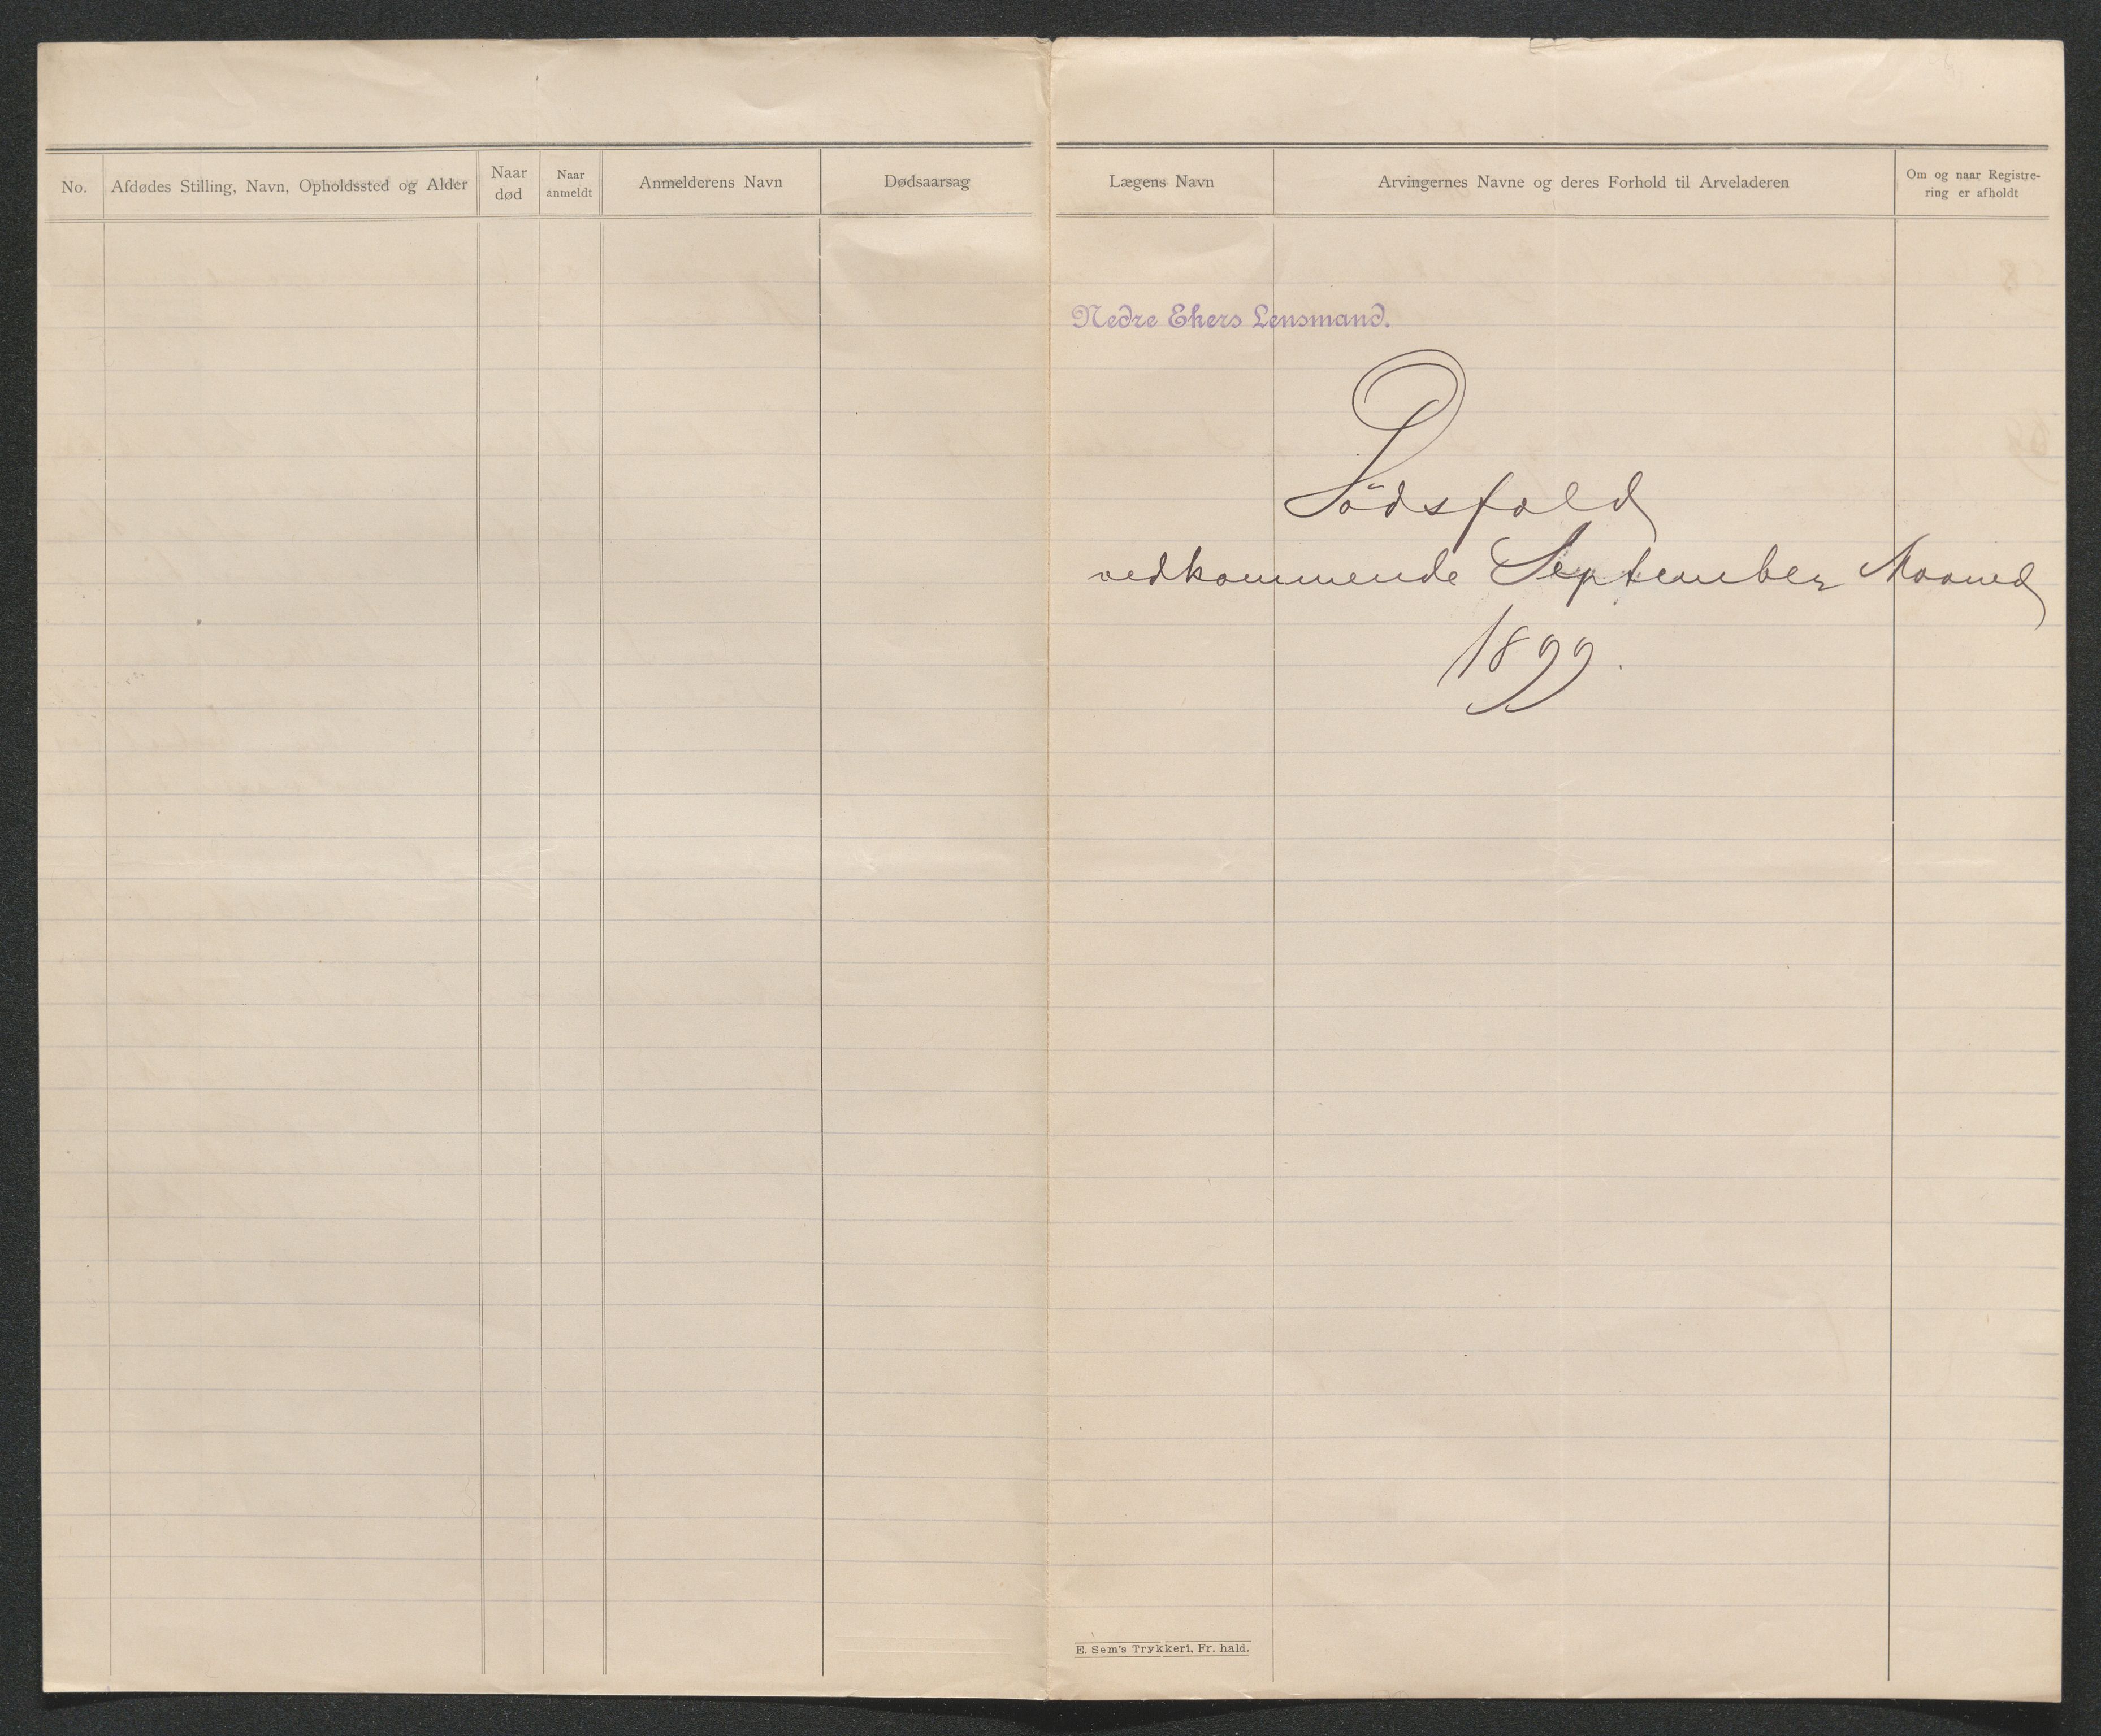 No.
Afdødes Stilling, Navn, Opholdssted og Alder
Naar
død
Naar
anmeldt
Anmelderens Navn
Dødsaarsag
Lægens Navn
Arvingernes Navne og deres Forhold til Arveladeren
Om og naar Registre-
ring er afholdt
Nedre Ekers Lensmand.
Dödsfald
vedkommende September Maaned
1899.
E. Sem's Trykkeri. Fr. hald.